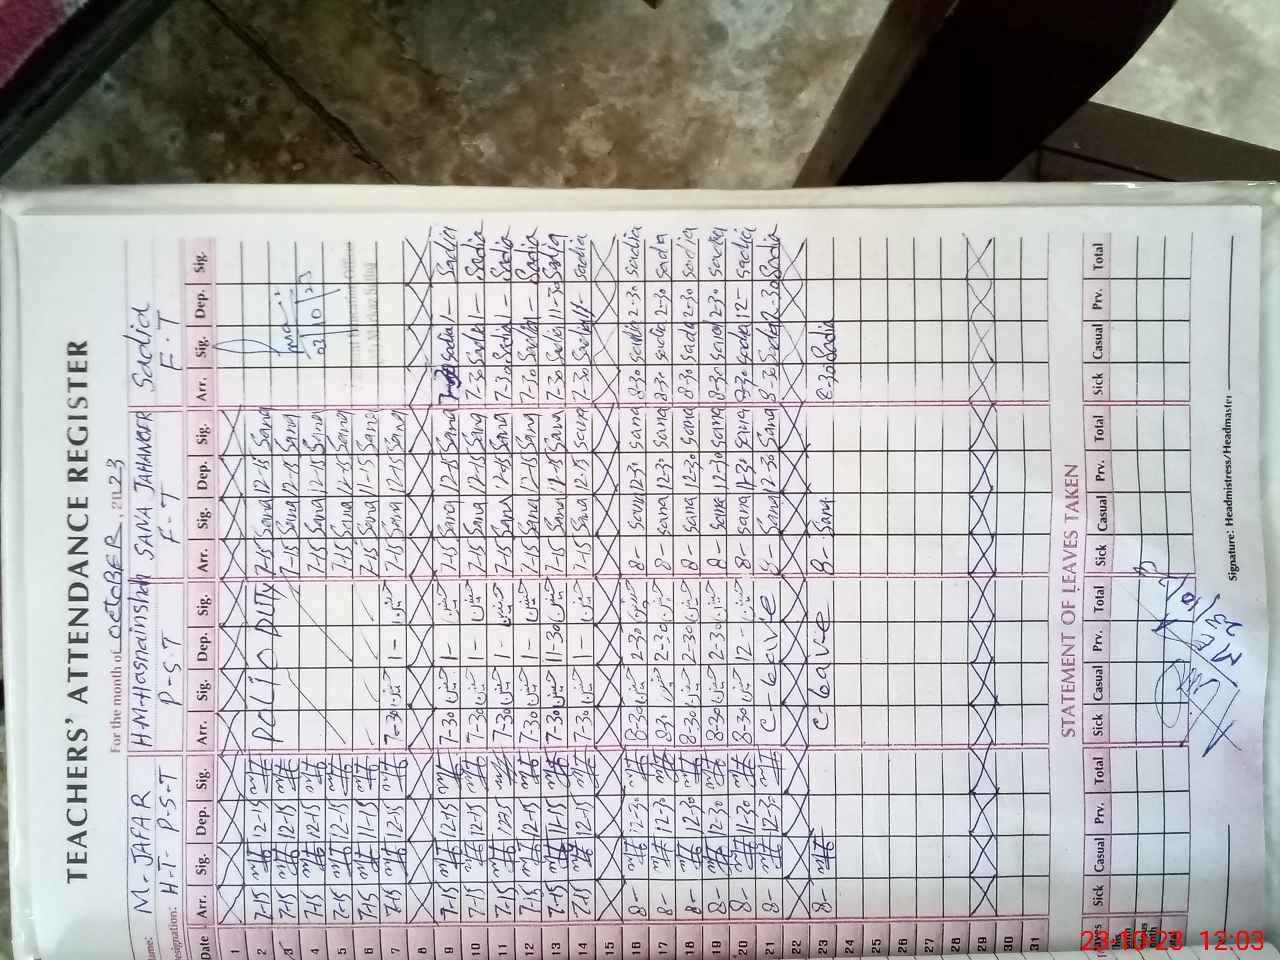 TEACHERS' ATTENDANCE REGISTER
For the month of OCTOBER, 2023
ame: M. JAFAR H.M. Hasnain Shah SANA JAHANGER Sadia
esignation: H.T. P.S.T P.S.T F.T F.T
Date Arr. Sig. Dep. Sig. Arr. Sig. Dep. Sig. Arr. Sig. Dep. Sig. Arr. Sig. Dep. Sig.
1
2 7-15 12-15 POLIO DUTY 7-15 Sana 12-15 Sana
3 7-15 12-15 7-15 Sana 12-15 Sana
4 7-15 12-15 7-15 Sana 12-15 Sana
5 7-15 12-15 7-15 Sana 12-15 Sana
6 7-15 11-15 7-15 Sana 11-15 Sana
7 7-15 12-15 7-30 1- 7-15 Sana 12-15 Sana
8
9 7-15 12-15 7-30 1- 7-15 Sana 12-15 Sana Sadia 1- Sadia
10 7-15 12-15 7-30 1- 7-15 Sana 12-15 Sana 7-30 Sadia 1- Sadia
11 7-15 12-15 7-30 1- 7-15 Sana 12-15 Sana 7-30 Sadia 1- Sadia
12 7-15 12-15 7-30 1- 7-15 Sana 12-15 Sana 7-30 Sadia 1- Sadia
13 7-15 11-15 7-30 11-30 7-15 Sana 11-15 Sana 7-30 Sadia 11-30 Sadia
14 7-15 12-15 7-30 1- 7-15 Sana 12-15 Sana 7-30 Sadia 1- Sadia
15
16 8- 12-30 8-30 2-30 8- Sana 12-30 Sana 8-30 Sadia 2-30 Sadia
17 8- 12-30 2-30 8- Sana 12-30 Sana 8-30 Sadia 2-30 Sadia
18 8- 12-30 8-30 2-30 8- Sana 12-30 Sana 8-30 Sadia 2-30 Sadia
19 8- 12-30 8-30 2-30 8- Sana 12-30 Sana 8-30 Sadia 2-30 Sadia
20 8- 11-30 8-30 12- 8- Sana 11-30 Sana 8-30 Sadia 12- Sadia
21 8- 12-30 C-leave 8- Sana 12-30 Sana 8-30 Sadia 2-30 Sadia
22
23 8- C-leave 8- Sana 8-30 Sadia
24
25
26
27
28
29
30
31
STATEMENT OF LEAVES TAKEN
Sick Casual Prv. Total Sick Casual Prv. Total Sick Casual Prv. Total Sick Casual Prv. Total
Signature: Headmistress/Headmaster
23-10-23 12:03